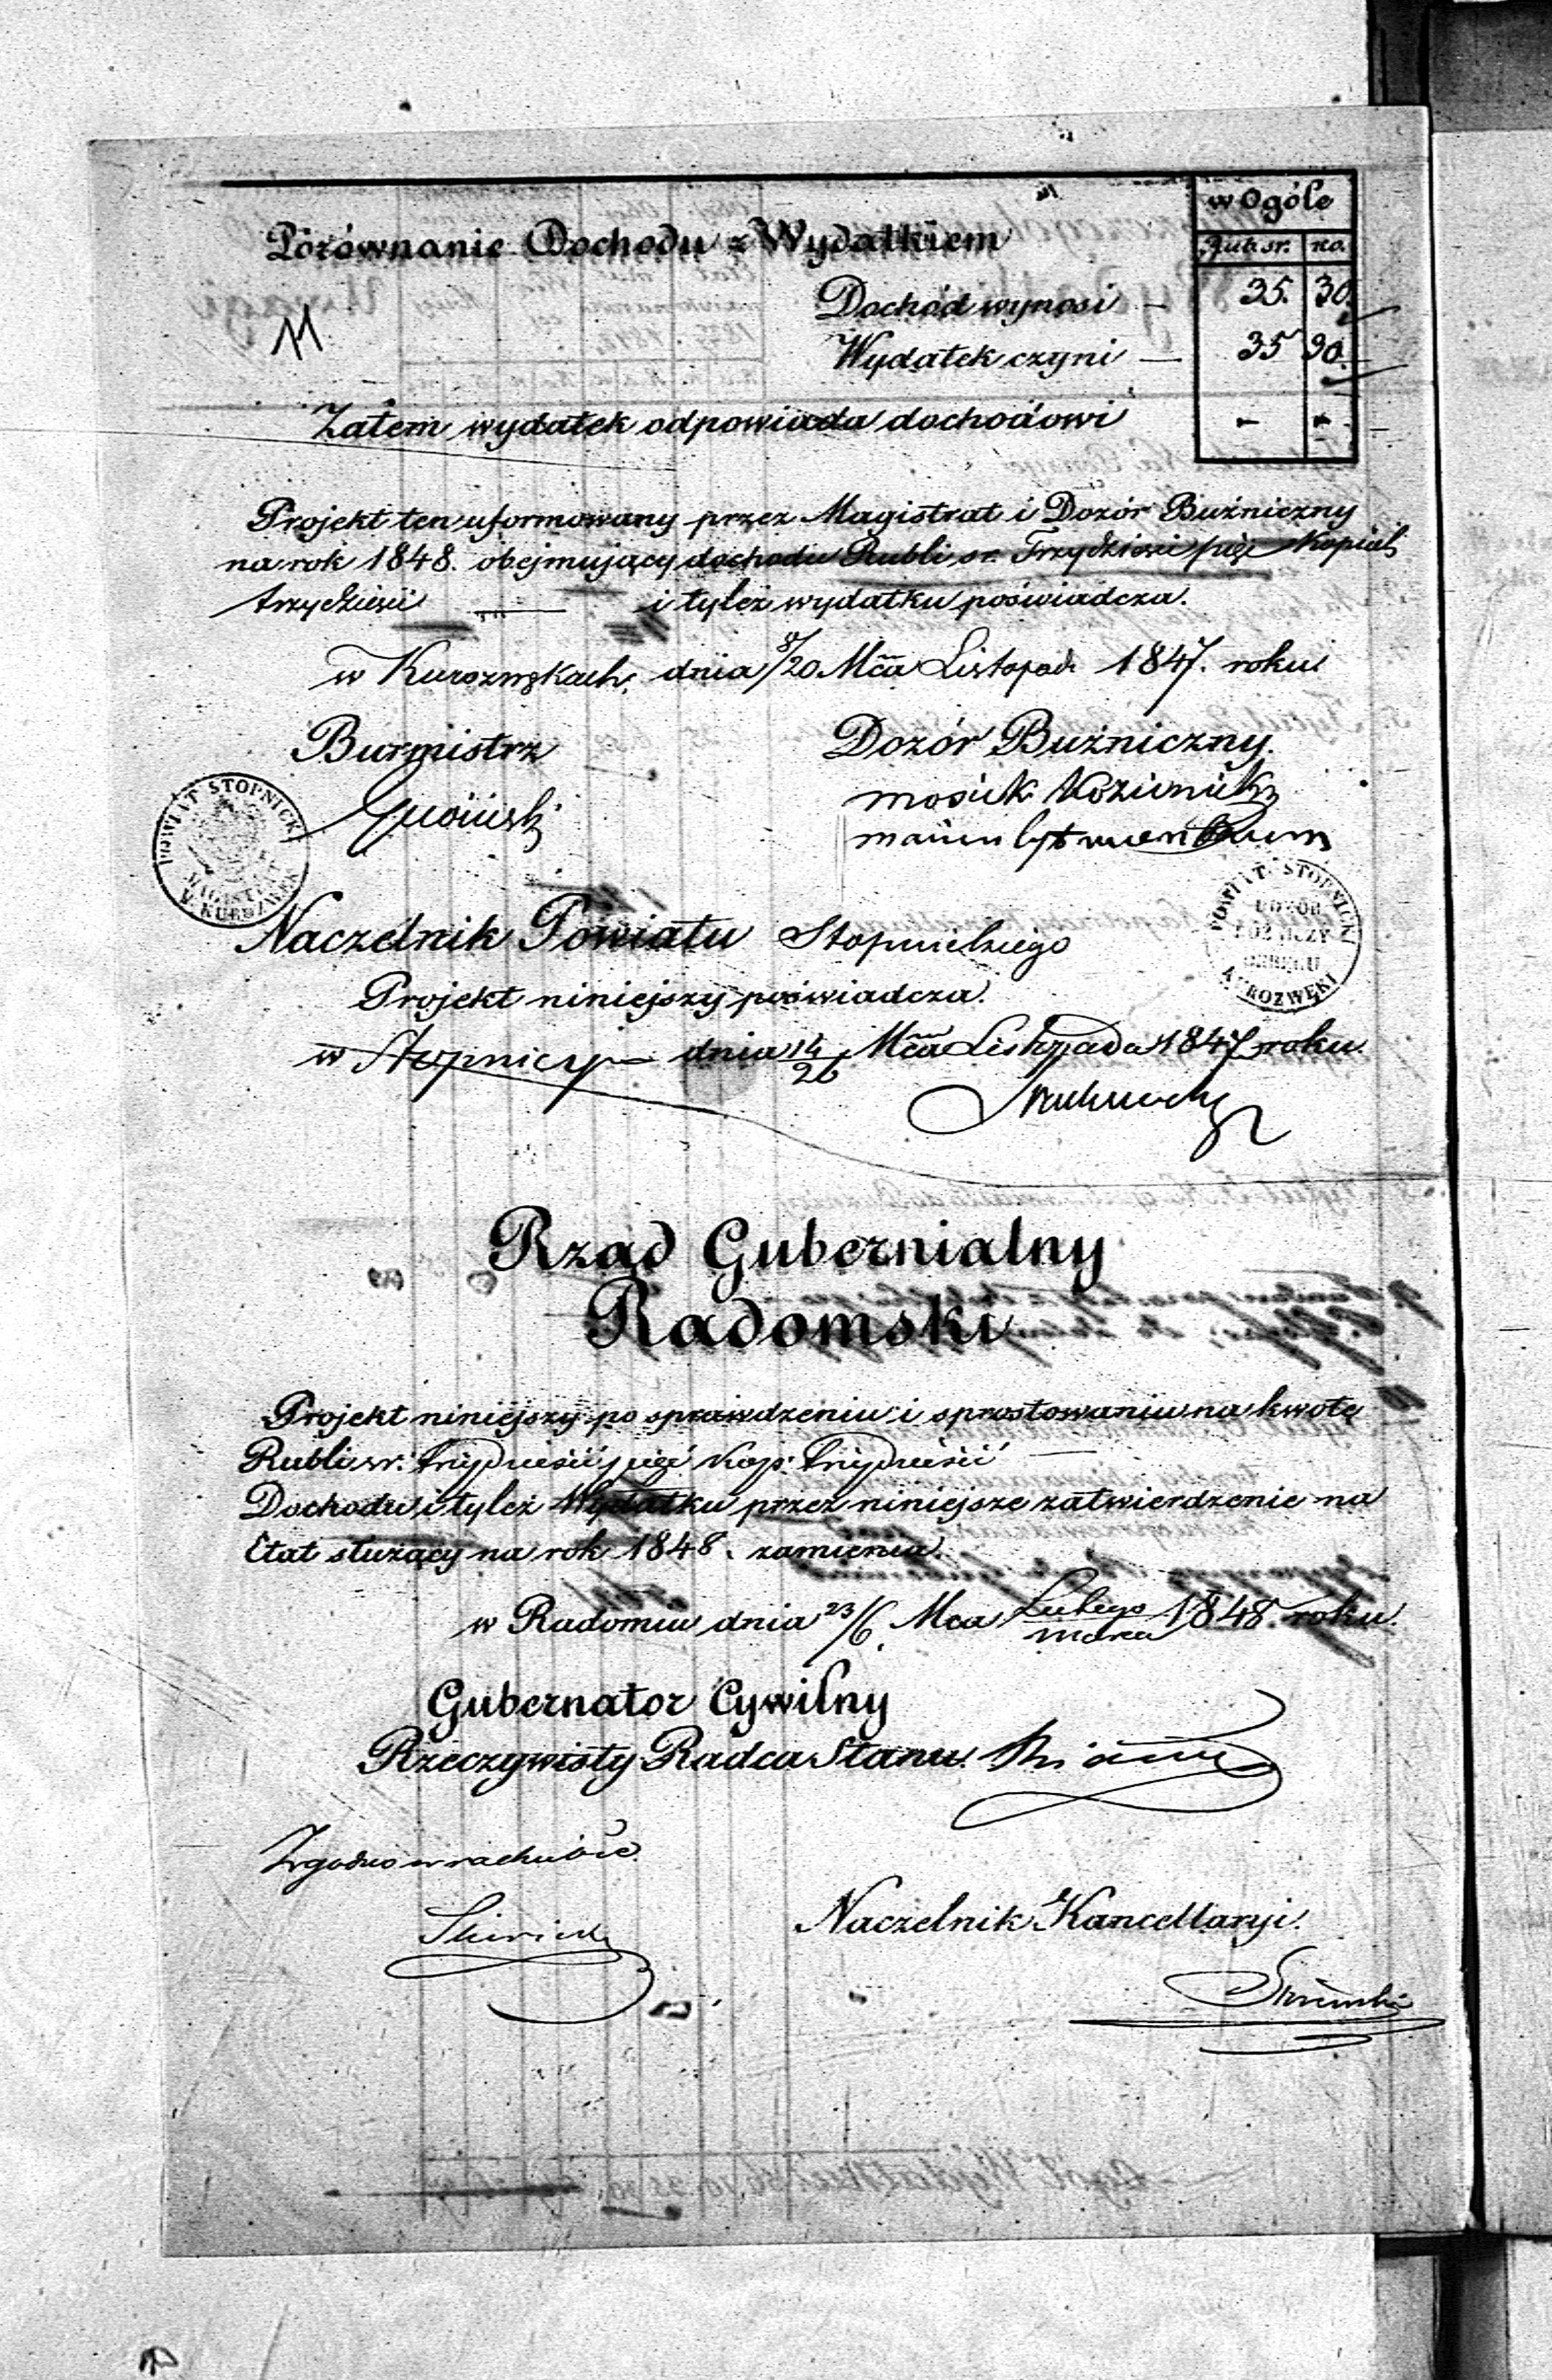 w Ogóle
Rub. sr. ko.
Porównanie Dochodu z Wydatkiem
Dochód wynosi — 35. 30.
11
Wydatek czyni — 35 30.
Zatem wydatek odpowiada dochodowi - -
Projekt ten uformowany przez Magistrat i Dozór Bużniczny
na rok 1848. obejmujący dochodu Rubli sr. Trzydzieści pięć Kopiek
trzydzieści — i tyleż wydatku poświadcza.
w Kurozwękach, dnia 8/20 Mca Listopad. 1847. roku
Burmistrz Dozór Bużniczny.
POWIAT STOPNICKI
MAGISTRAT
Naczelnik Powiatu Stopnickiego
POWIAT STOPNICKI
DOZÓR
OKRĘGU
KUROZWĘKI
Projekt niniejszy poświadcza.
w Stopnicy dnia 14/26 Mca Listopada 1847 roku.
Rząd Gubernialny
Radomski
Projekt niniejszy po sprawdzeniu i sprostowaniu na kwotę
Rubli sr: trzydzieści pięć kop: trzydzieści —
Dochodu i tyleż Wydatku przez niniejsze zatwierdzenie na
Etat służący na rok 1848. zamienia.
w Radomiu dnia 23/6. Mca Lutego/marca 1848. roku.
Gubernator Cywilny
Rzeczywisty Radca Stanu.
Zgodno w rachubie.
Naczelnik Kancellaryi.